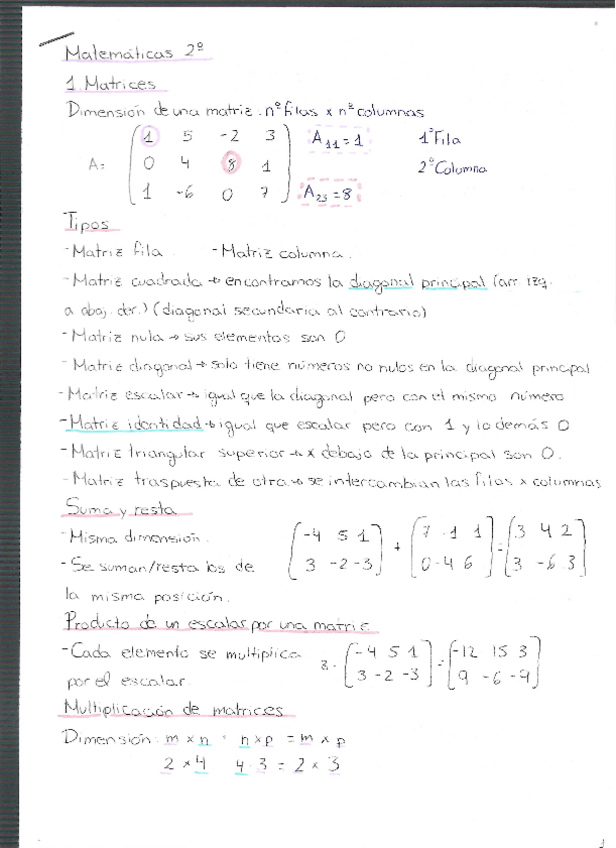 Matemáticas 2º
1. Matrices
Dimensión de una matriz: nº filas x nº columnas
A= ( 1 5 -2 3 ) A₁₁ = 1 1ª Fila
0 4 8 1 2ª Columna
1 -6 0 7 A₂₃ = 8
Tipos
- Matriz fila. - Matriz columna.
- Matriz cuadrada → encontramos la diagonal principal (arr. izq.
a abaj. der.) (diagonal secundaria al contrario)
- Matriz nula → sus elementos son 0
- Matriz diagonal → solo tiene números no nulos en la diagonal principal
- Matriz escalar → igual que la diagonal pero con el mismo número
- Matriz identidad → igual que escalar pero con 1 y lo demás 0
- Matriz triangular superior → x debajo de la principal son 0.
- Matriz traspuesta de otra → se intercambian las filas x columnas
Suma y resta
- Misma dimensión. ( -4 5 1 ) + ( 7 -1 1 ) = ( 3 4 2 )
- Se suman/resta los de ( 3 -2 -3 ) ( 0 -4 6 ) ( 3 -6 3 )
la misma posición.
Producto de un escalar por una matriz
- Cada elemento se multiplica 3 · ( -4 5 1 ) = ( -12 15 3 )
por el escalar. ( 3 -2 -3 ) ( 9 -6 -9 )
Multiplicación de matrices
Dimensión: m x n · n x p = m x p
2 x 4 4 · 3 = 2 x 3